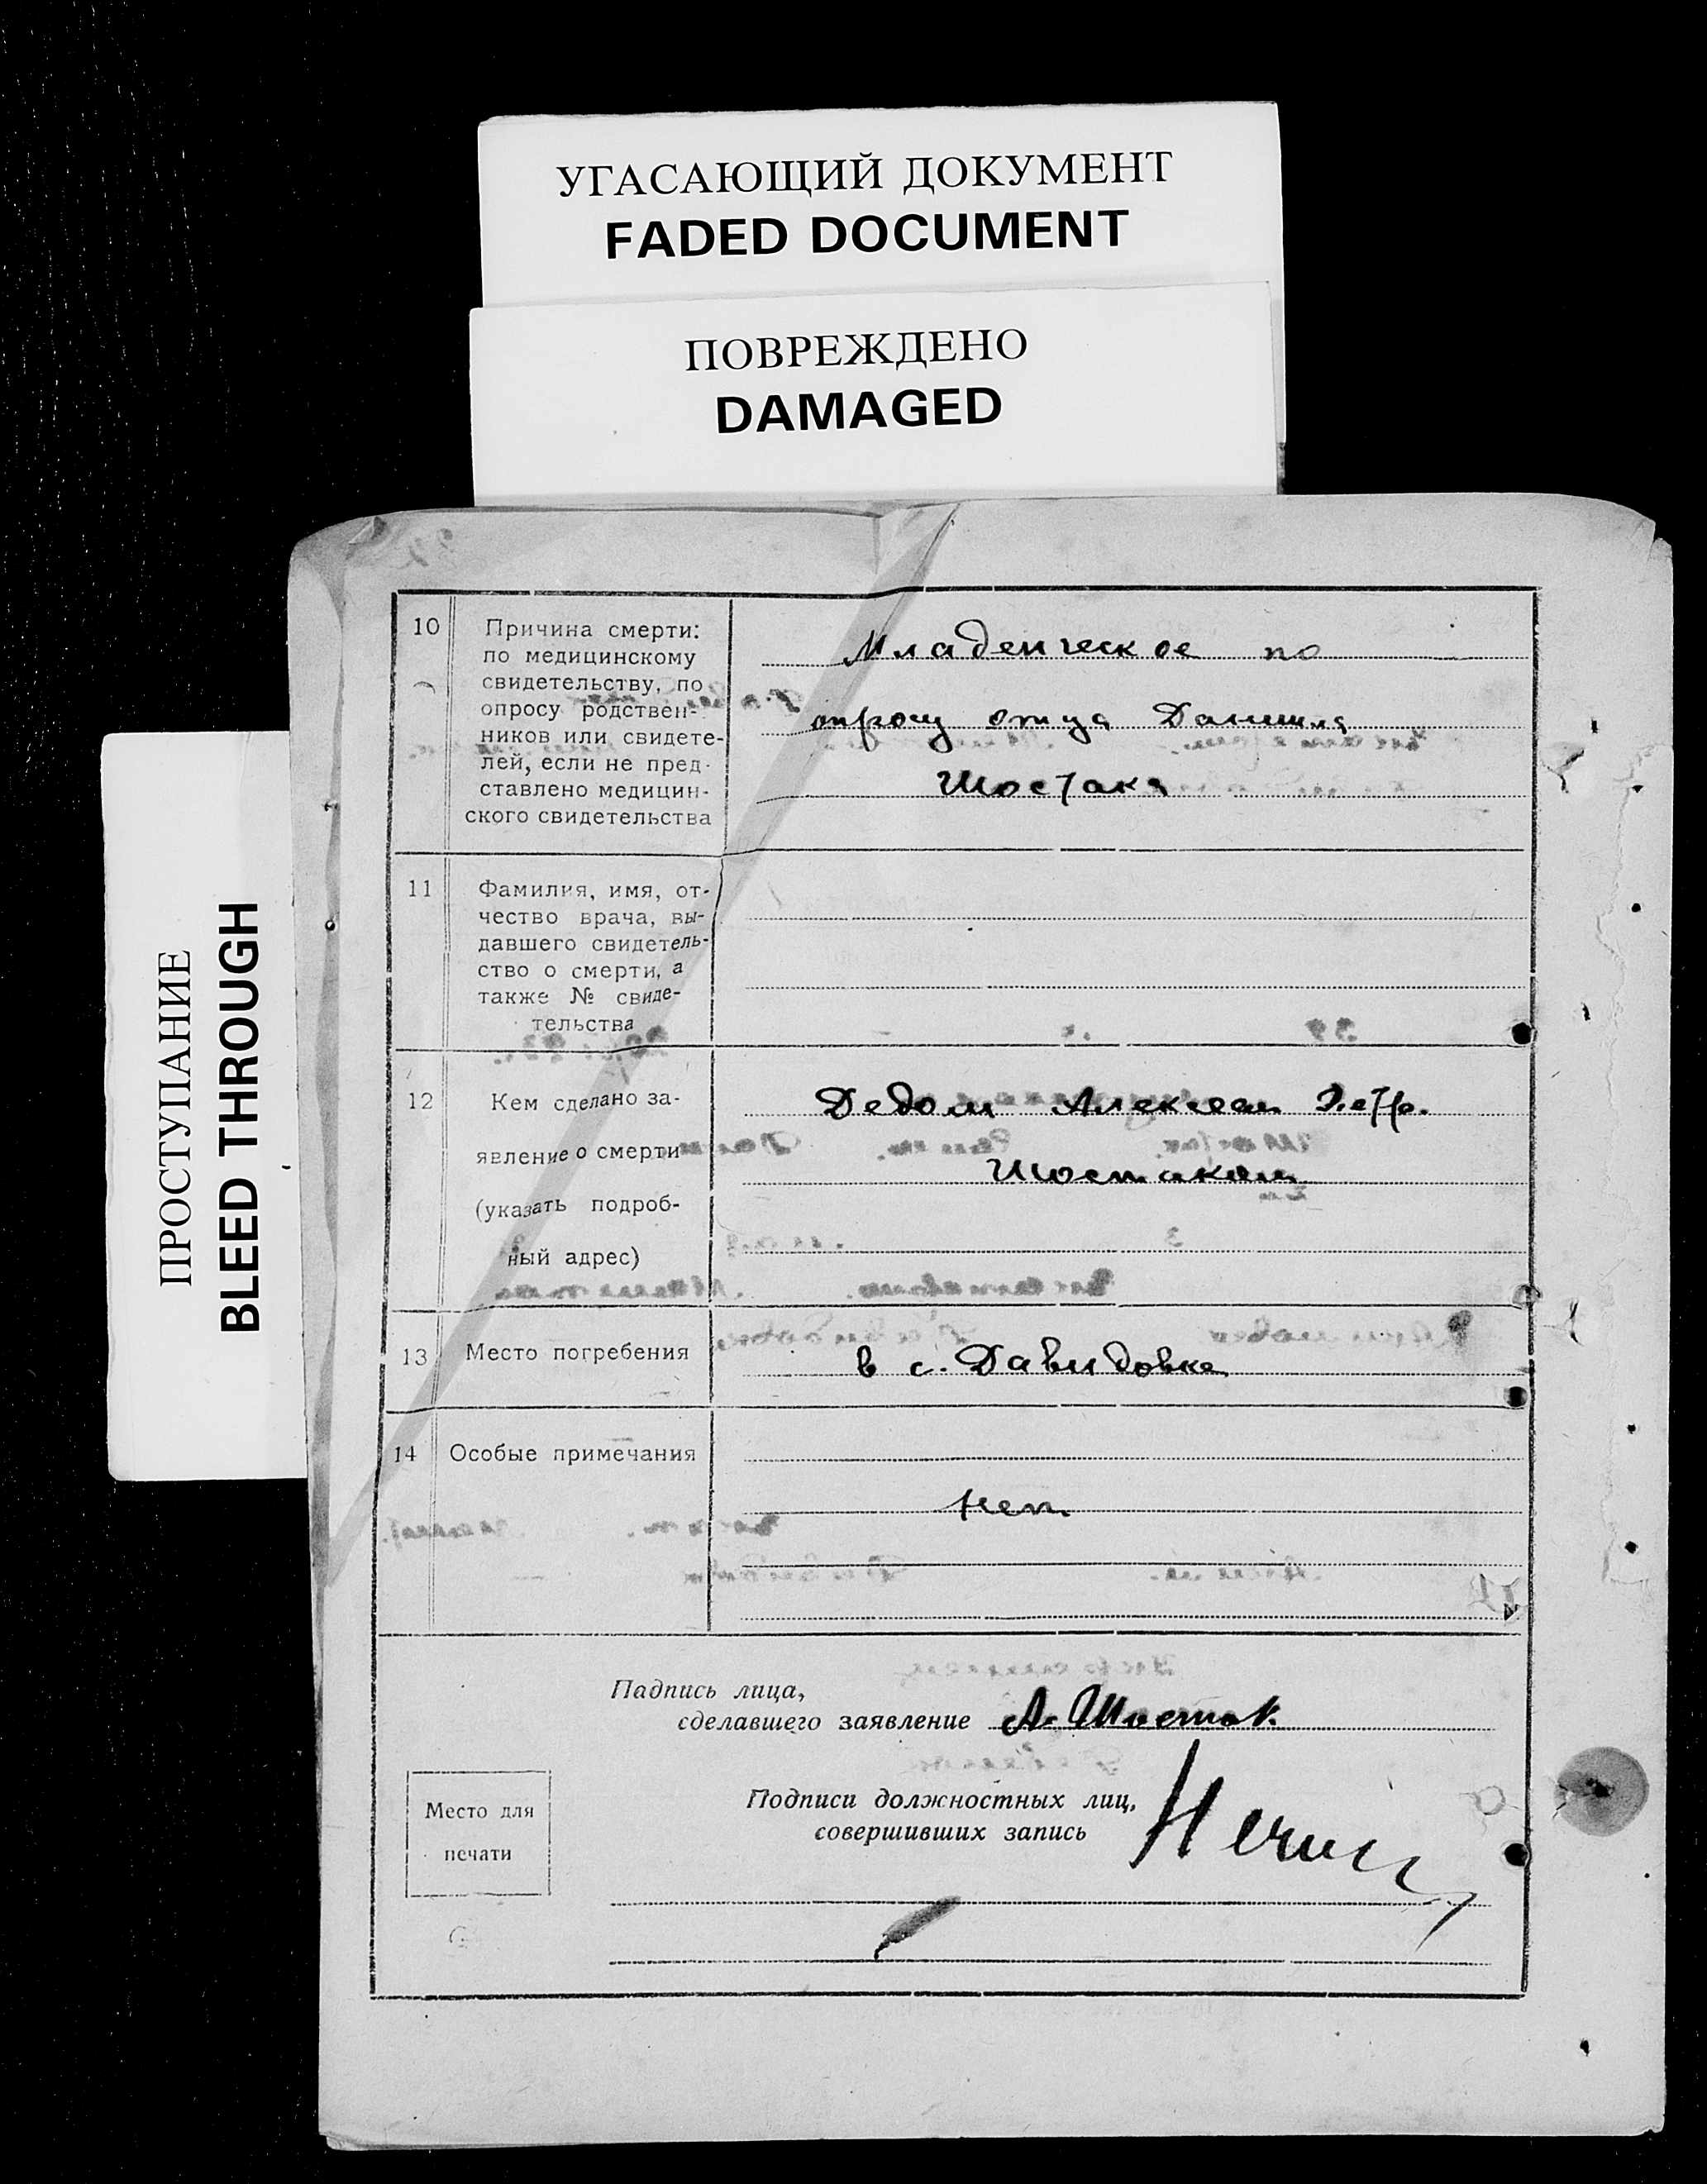 УГАСАЮЩИЙ ДОКУМЕНТ
FADED DOCUMENT
ПОВРЕЖДЕНО
DAMAGED
ПРОСТУПАНИЕ
BLEED THROUGH
10
Причина смерти:
по медицинскому
свидетельству, по
опросу родствен-
ников или свидете-
лей, если не пред-
ставлено медицин-
ского свидетельства
Младенческое по
опросу отца Даниила
Шостака
11
Фамилия, имя, от-
чество врача, вы-
давшего свидетель-
ство о смерти, а
также № свиде-
тельства
12
Кем сделано за-
явление о смерти
(указать подроб-
ный адрес)
Дедом Алексеем Петр.
Шостаком
13
Место погребения
в с. Давидовке
14
Особые примечания
Нет
Падпись лица,
сделавшего заявление А. Шостак
Подписи должностных лиц,
совершивших запись
Место для
печати